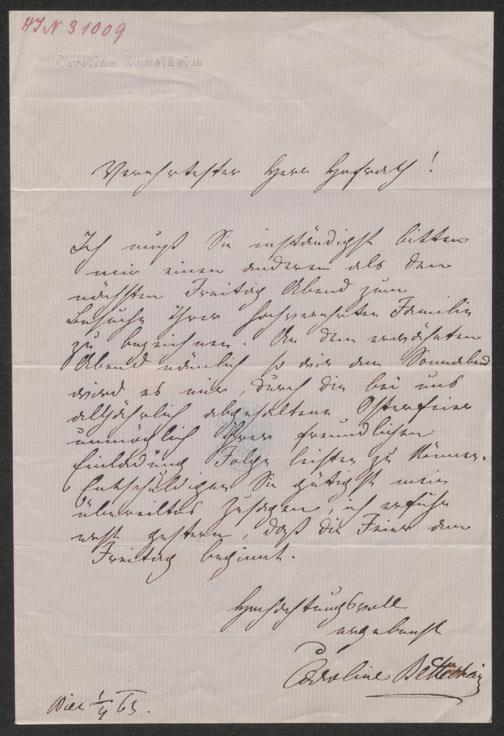 HIN 31009
Caroline Bettelheim
Verehrtester Herr Hofrath!
Ich muß Sie inständigst bitten
mir einen anderen als den
nächsten Freitag Abend zum
Besuche Ihrer hochverehrten Familie
zu bezeichnen. An dem erwähnten
Abend nämlich so wie am Sonnabend
wird es mir durch die bei uns
alljährlich abgehaltene Osterfeier
unmöglich Ihrer freundlichen
Einladung Folge leisten zu können.
Entschuldigen Sie gütigst mein
übereiltes Zusagen, ich erfuhr
erst gestern, daß die Feier am
Freitag beginnt.
Hochachtungsvoll
ergebenst
Caroline Bettelheim
Wien 1/4 63.